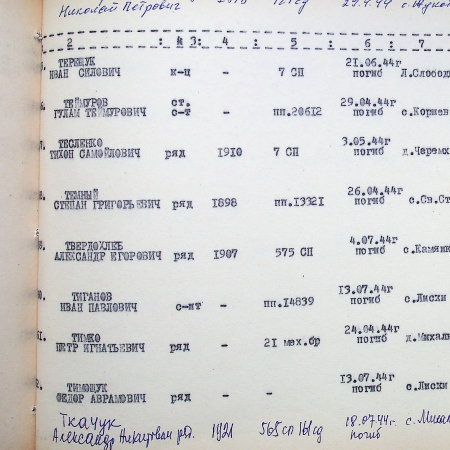 Николай Петрович 161сд 29.4.44
2 : й 3: 4 : 5 : 6 : 7
ТЕРЕЩУК 21.06.44г
ИВАН СИЛОВИЧ к-ц - 7 СП погиб Л.Слобод
ТЕЙМУРОВ ст. 29.04.44г
ГУЛАМ ТЕЙМУРОВИЧ с-т - пп.20612 погиб с.Корнев
ТЕСЛЕНКО 3.05.44г
ТИХОН САМОЙЛОВИЧ ряд 1910 7 СП погиб д.Черемх
ТЕМНЫЙ 26.04.44г
СТЕПАН ГРИГОРЬЕВИЧ ряд 1898 пп.13321 погиб с.Св.Ст
ТВЕРДОХЛЕБ 4.07.44г
АЛЕКСАНДР ЕГОРОВИЧ ряд 1907 575 СП погиб с.Камянк
ТИГАНОВ 13.07.44г
ИВАН ПАВЛОВИЧ с-нт - пп.14839 погиб с.Лиски
ТИМКО 24.04.44г
ПЕТР ИГНАТЬЕВИЧ ряд - 21 мех.бр погиб д.Михаль
ТИМОЩУК 13.07.44г
ФЕДОР АВРАМОВИЧ ряд - - погиб с.Лиски
Ткачук 18.07.44г. с.Михал
Александр Никитович ряд. 1921 565сп 161сд погиб